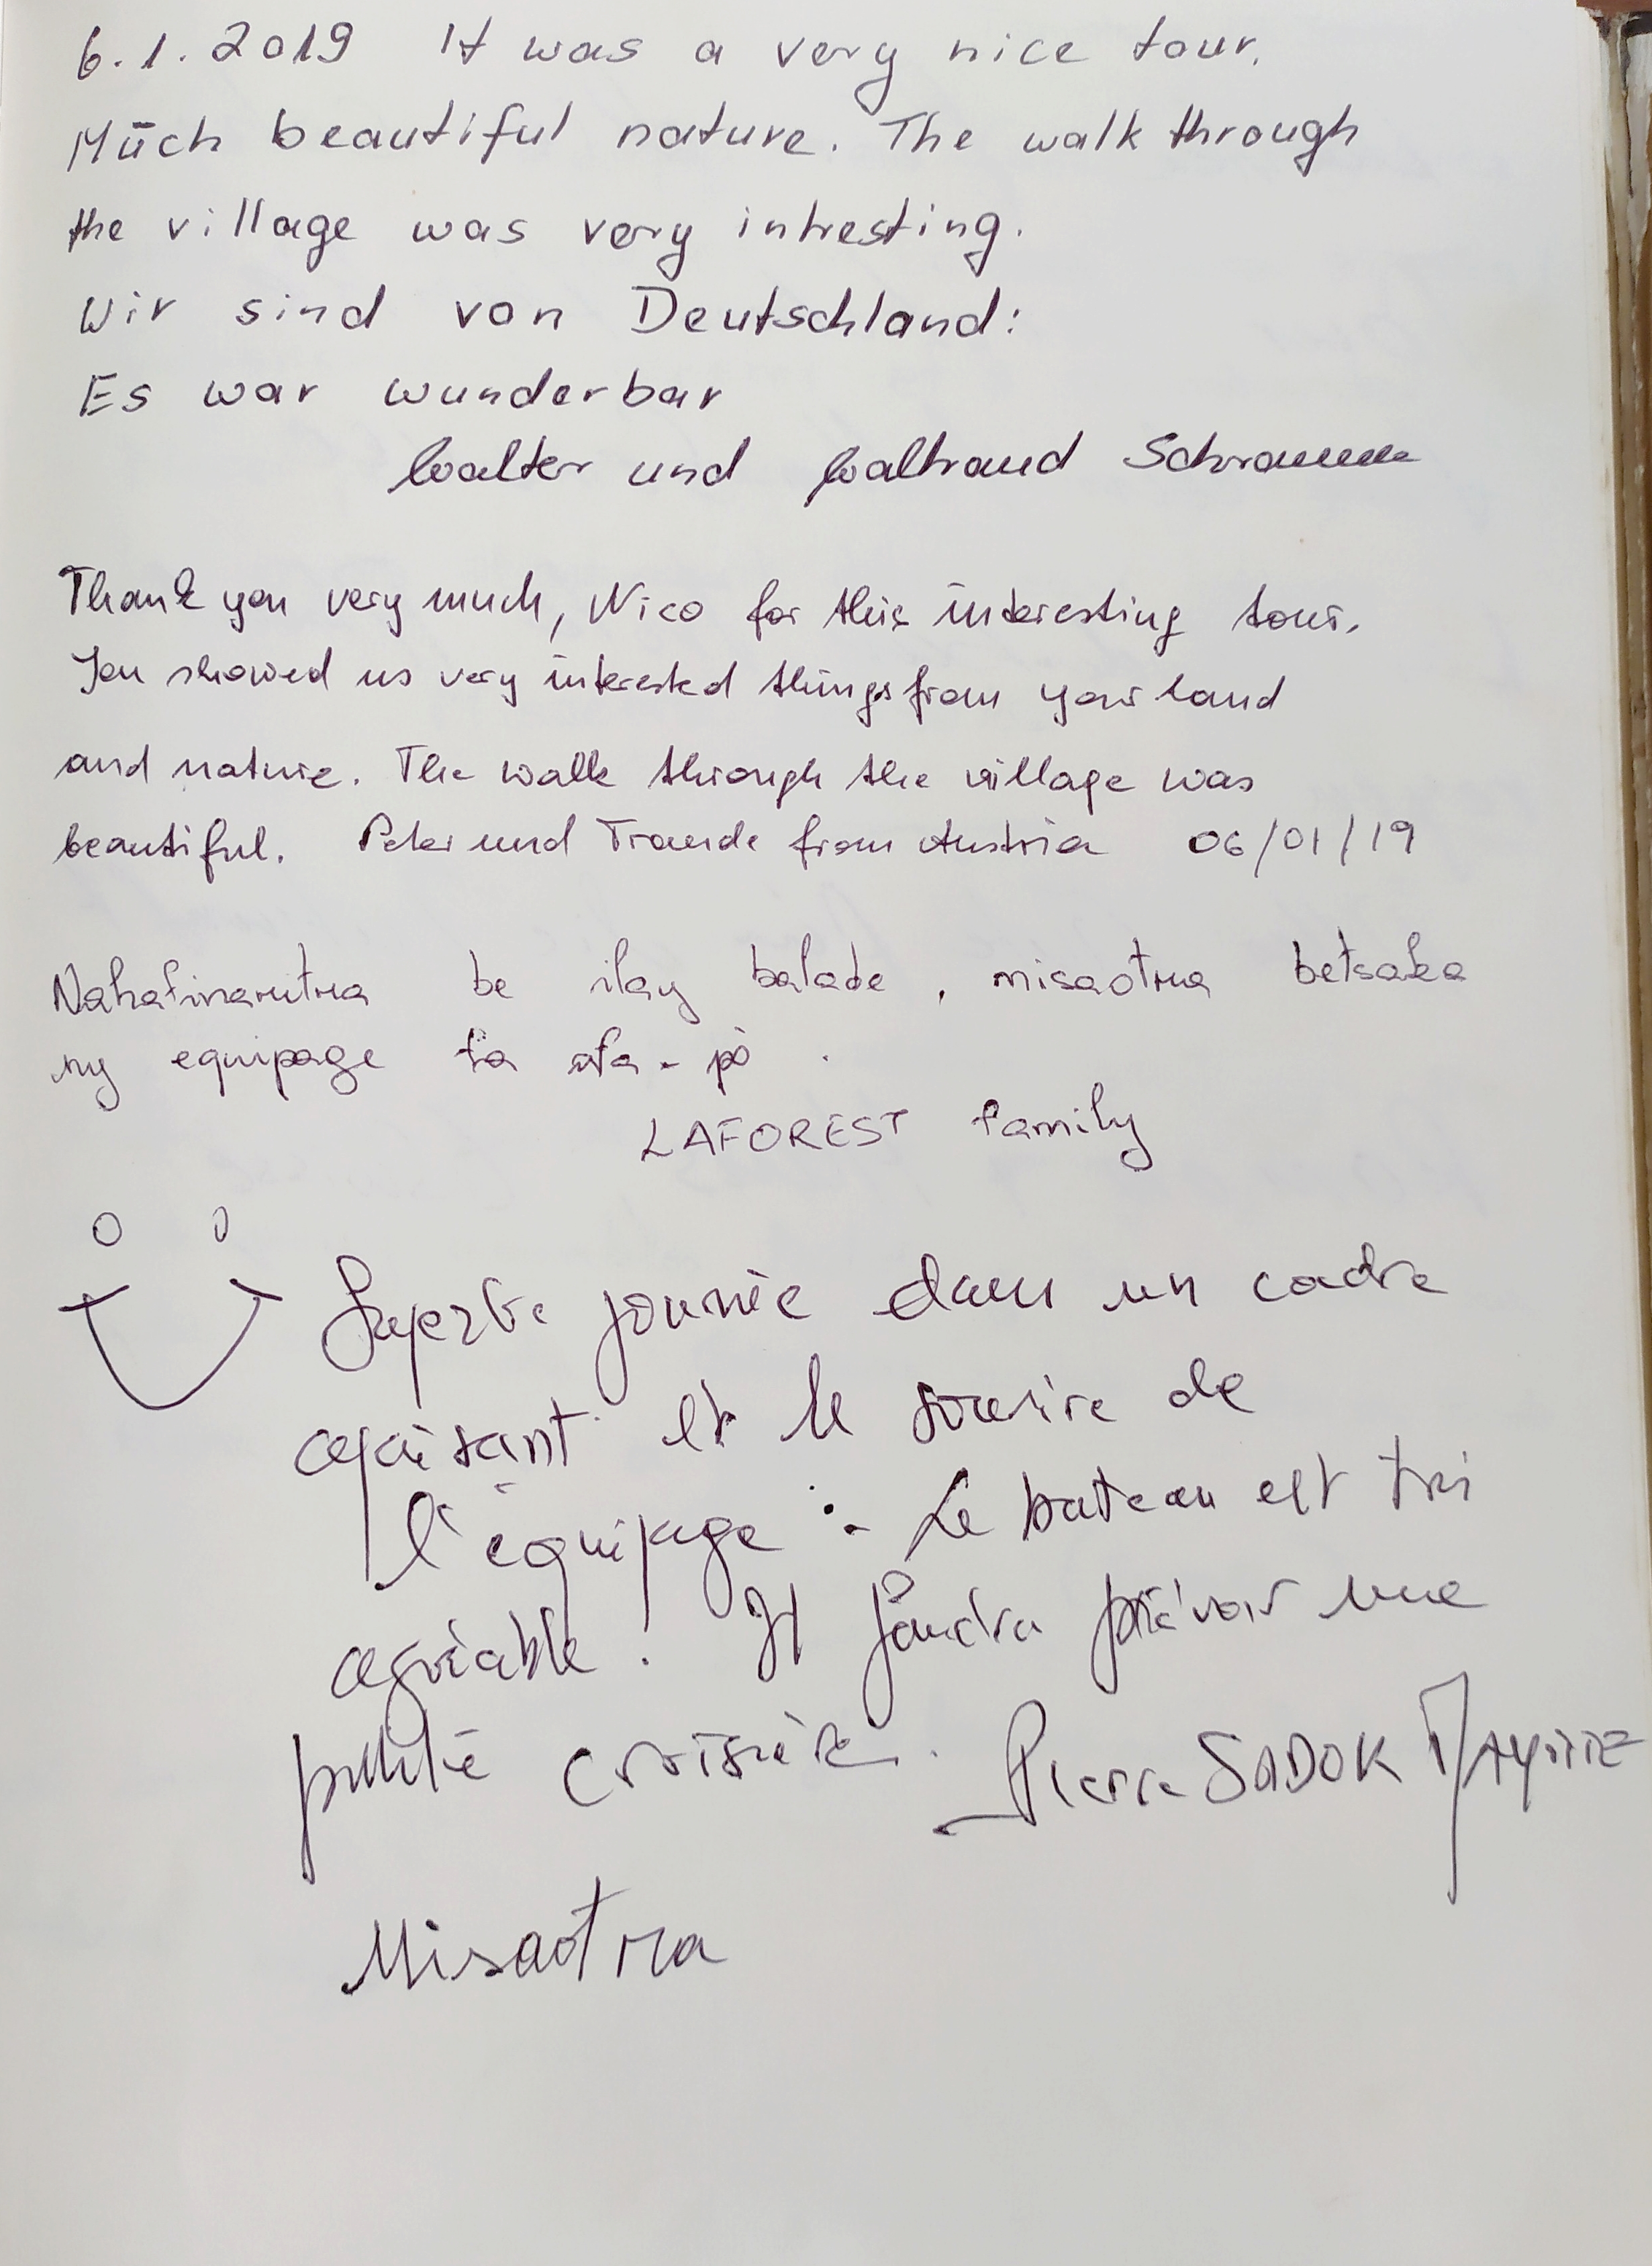 6.1.2019 It was a very nice tour.
Much beautiful nature. The walk through
the village was very intresting.
Wir sind von Deutschland:
Es war wunderbar
Walter und Waltraud Schramm
Thank you very much, Nico for this interesting tour.
You showed us very interested things from your land
and nature. The walk through the village was
beautiful. Peter und Traude from Austria 06/01/19
Nahafinaritra be ilay balade, misaotra betsaka
ny equipage fa afa-po.
LAFOREST family
Superbe journée dans un cadre
apaisant et le sourire de
l'équipage :- Le bateau est très
agréable! Il faudra prévoir une
petite croisière. Pierre SADOK
Misaotra